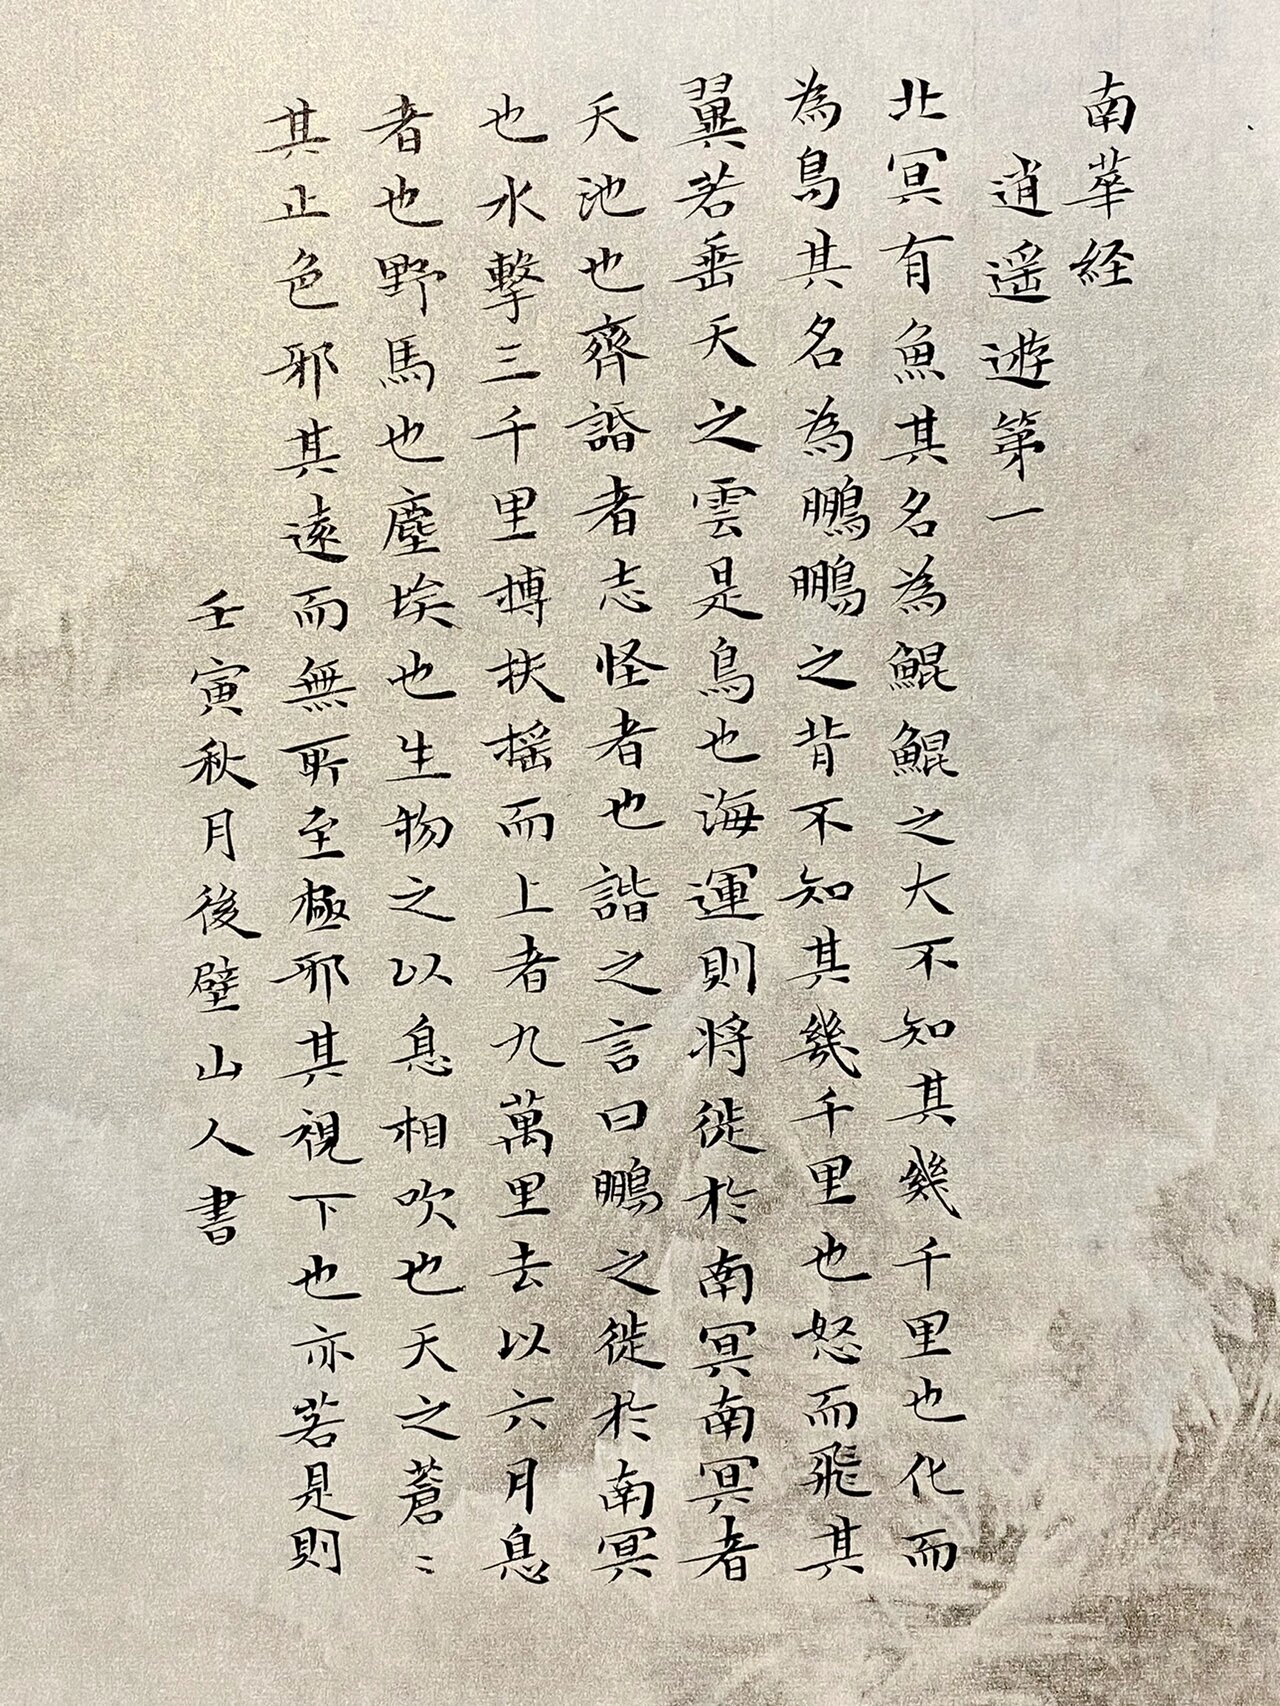 南華経
逍遥遊第一
北冥有魚其名為鯤鯤之大不知其幾千里也化而
為鳥其名為鵬鵬之背不知其幾千里也怒而飛其
翼若垂天之雲是鳥也海運則将徙於南冥南冥者
天池也齊諧者志怪者也諧之言曰鵬之徙於南冥
也水擊三千里摶扶摇而上者九萬里去以六月息
者也野馬也塵埃也生物之以息相吹也天之蒼〻
其正色邪其遠而無所至極邪其視下也亦若是則
壬寅秋月後壁山人書